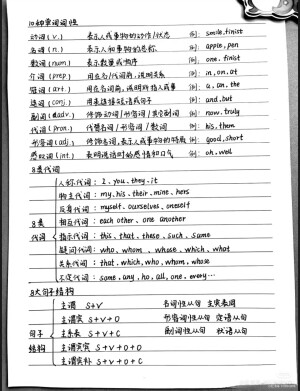 10种单词词性
动词(v.) 表示人或事物的动作/状态 例: smile, finist
名词(n.) 表示人和事物的名称 例: apple, pen
数词(num) 表示数量或顺序 例: one, finist
介词(prep) 用在名/代词前,说明关系 例: in, on, at
冠词(art) 用在名词前,说明所指人或事 例: a, an, the
连词(conj.) 用来连接短语或句子 例: and, but
副词(adv.) 修饰动词/形容词/其它副词 例: now, truly
代词(pron.) 代替名词/形容词/数词 例: his, them
形容词(adj) 修饰名词,表示人或事物的特质 例: good, short
感叹词(int) 表明说话时的感情和口气 例: oh, well
8类代词
人称代词: I, you, they, it
物主代词: my, his, their, mine, hers
反身代词: myself, ourselves, oneself
8类 相互代词: each other, one another
代词 指示代词: this, that, these, such, same
疑问代词: who, whom, whose, which, what
关系代词: that, which, who, whom, whose
不定代词: some, any, ho, all, one, every…
5大句子结构
主谓 S+V 名词性从句 主宾表同
主谓宾 S+V+O 形容词性从句 定语从句
句子 主系表 S+V+C 副词性从句 状语从句
结构 主谓宾宾 S+V+O+O
主谓宾补 S+V+O+C